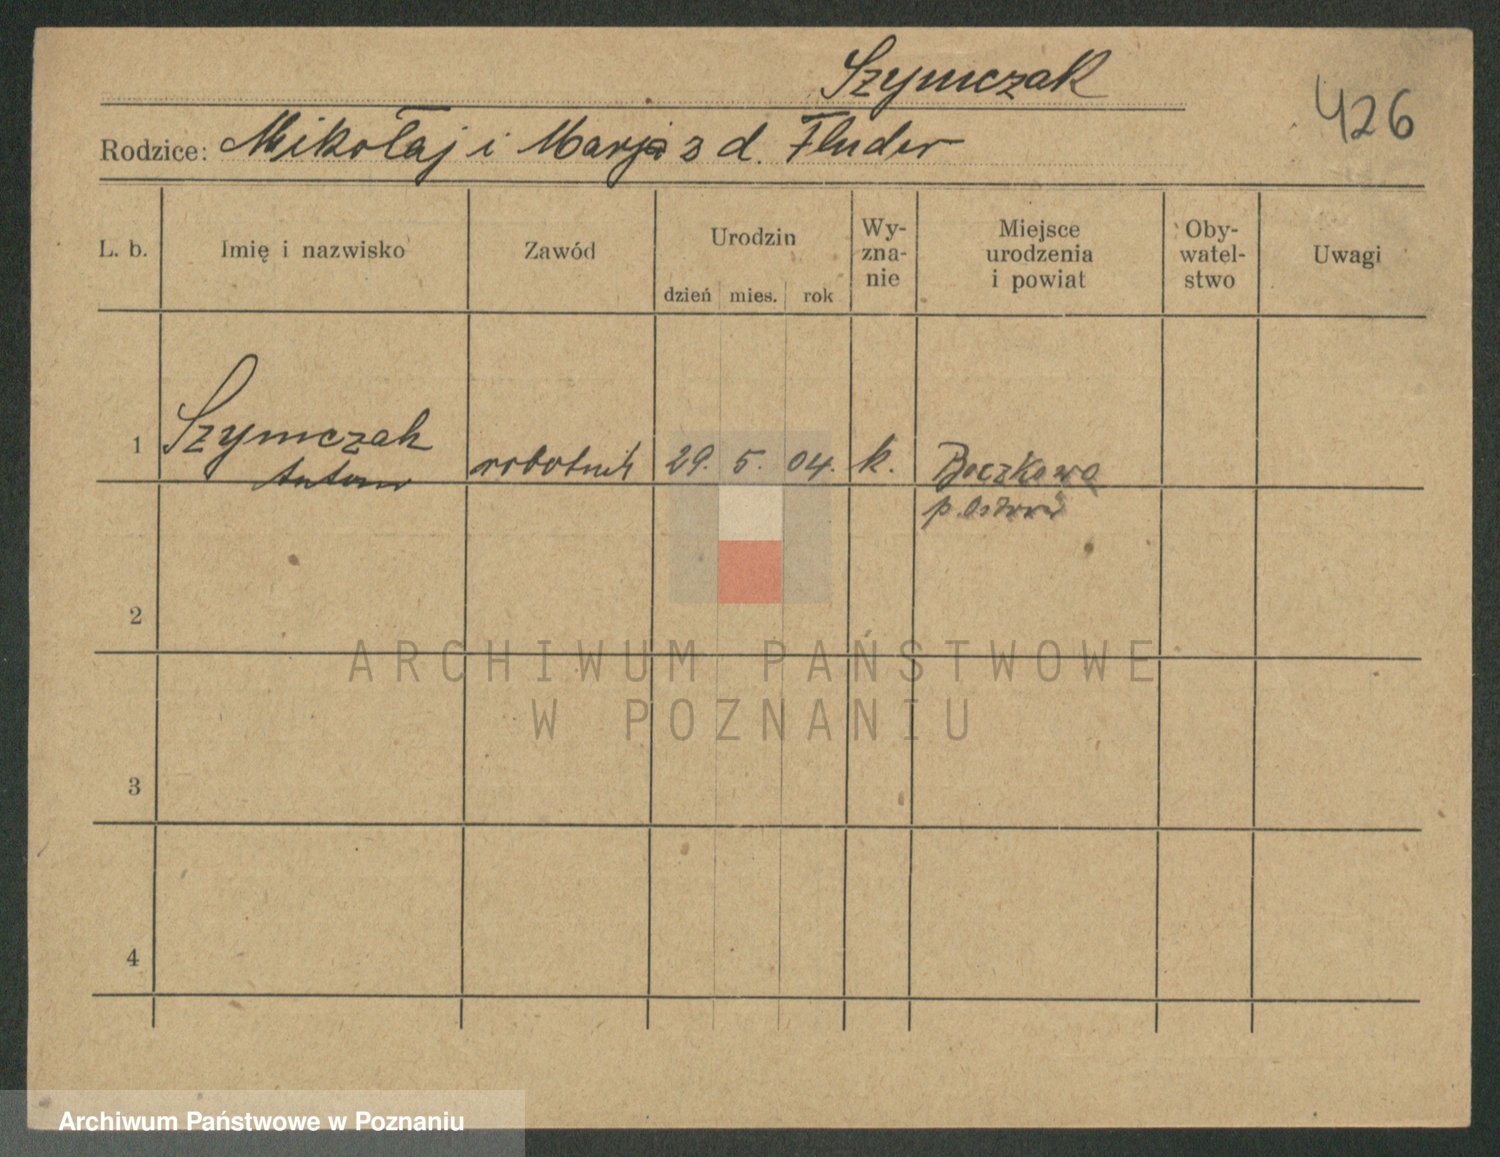 Szymczak
426
Rodzice: Mikołaj i Marja z d. Fluder
L. b.
Imię i nazwisko
Zawód
Urodzin
dzień mies. rok
Wy-
zna-
nie
Miejsce
urodzenia
i powiat
Oby-
watel-
stwo
Uwagi
1
Szymczak
Antoni
robotnik
29. 5. 04.
k.
Boczkowa
p. Ostrów
2
3
4
ARCHIWUM PAŃSTWOWE
W POZNANIU
Archiwum Państwowe w Poznaniu